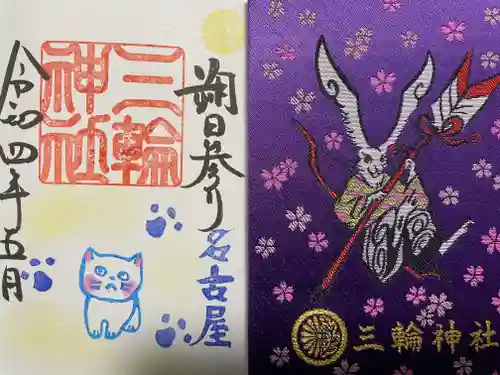 朔日参り
名古屋
三輪
神社
令和四年五月
三輪神社